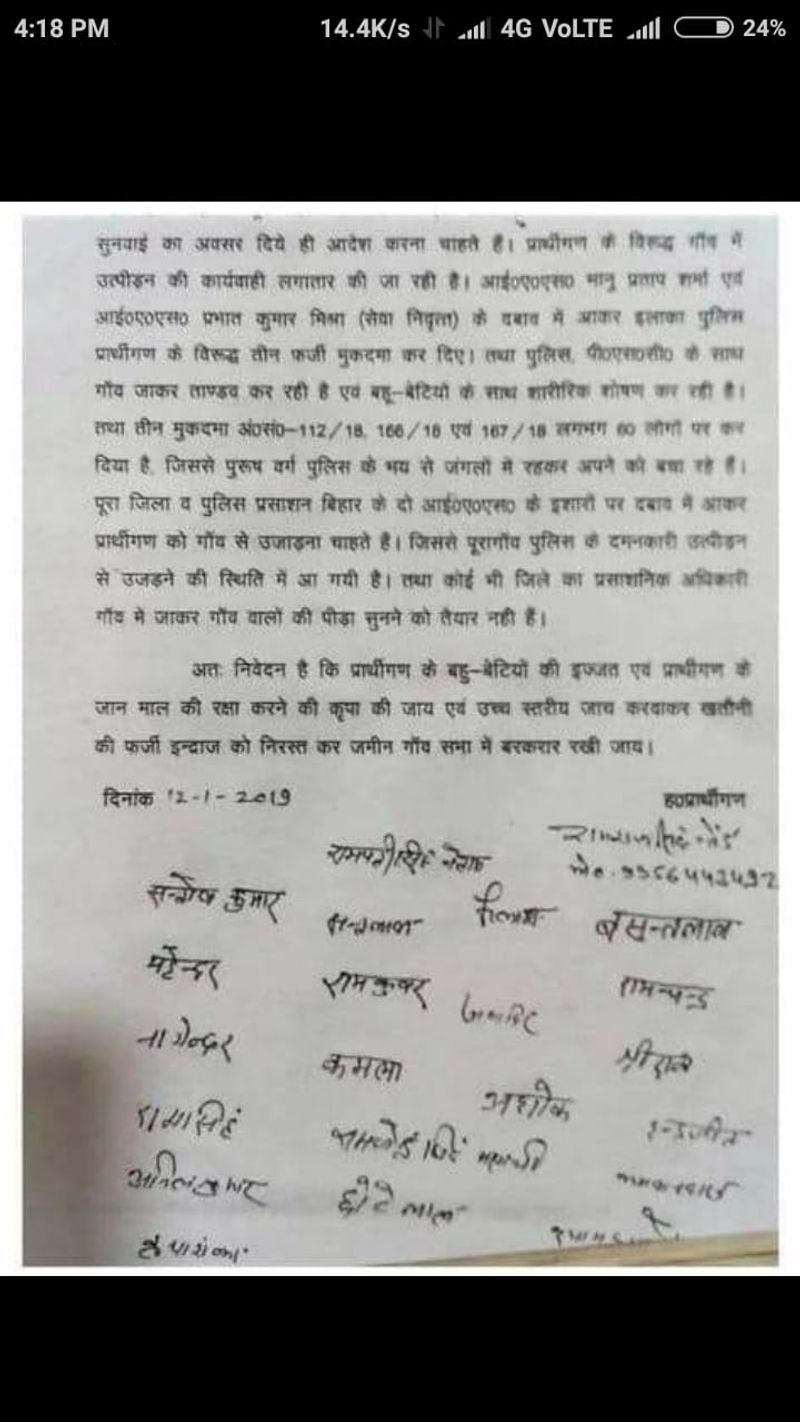 4:18 PM 14.4K/s 4G VoLTE 24%
सुनवाई का अवसर दिये ही आदेश करना चाहते हैं। प्रार्थीगण के विरूद्ध गॉव में
उत्पीड़न की कार्यवाही लगातार की जा रही है। आई०ए०एस० भानु प्रताप शर्मा एवं
आई०ए०एस० प्रभात कुमार मिश्रा (सेवा निवृत्त) के दबाव में आकर इलाका पुलिस
प्रार्थीगण के विरूद्ध तीन फर्जी मुकदमा कर दिए। तथा पुलिस, पी०ए०सी० के साथ
गॉव जाकर ताण्डव कर रही है एवं बहू-बेटियों के साथ शारीरिक शोषण कर रही है।
तथा तीन मुकदमा अं०सं०-112/18, 166/18 एवं 167/18 लगभग 60 लोगों पर कर
दिया है, जिससे पुरूष वर्ग पुलिस के भय से जंगलों में रहकर अपने को बचा रहे हैं।
पूरा जिला व पुलिस प्रसाशन बिहार के दो आई०ए०एस० के इशारों पर दबाव में आकर
प्रार्थीगण को गॉव से उजाड़ना चाहते है। जिससे पूरागॉव पुलिस के दमनकारी उत्पीड़न
से उजड़ने की स्थिति में आ गयी है। तथा कोई भी जिले का प्रसाशनिक अधिकारी
गॉव मे जाकर गॉव वालों की पीड़ा सुनने को तैयार नही हैं।
अतः निवेदन है कि प्रार्थीगण के बहु-बेटियों की इज्जत एवं प्रार्थीगण के
जान माल की रक्षा करने की कृपा की जाय एवं उच्च स्तरीय जाच करवाकर खतौनी
की फर्जी इन्द्राज को निरस्त कर जमीन गॉव सभा में बरकरार रखी जाय।
दिनांक 12-1-2019 ह०प्रार्थीगण
सन्तोष कुमार बसन्तलाल
महेन्द्र रामकुवर रामचन्द्र
नागेन्द्र कमला
अशोक
रामा सिंह इन्द्रजीत
अनिल कुमार छोटे लाल